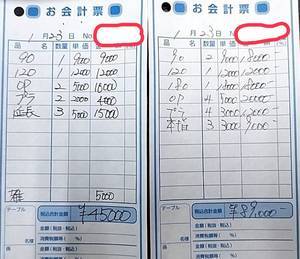 お会計票
1月23日 No.
品名 数量 単価 金額
90 1 9000 9000
120 1 12000 12000
OP 2 5000 10000
プラ 2 2000 4000
延長 3 5000 15000
5000
テーブル 税込合計金額 ¥45000
名様 合計金額(税抜・税込)
係 消費税額等( %)
お会計票
1月23日 No.
品名 数量 単価 金額
90 2 9000 18000-
120 1 12000 12000-
180 1 18000 18000-
OP 4 5000 20000-
プラ 4 3000 12000-
本指 3 3000 9000-
テーブル 税込合計金額 ¥89,000-
名様 合計金額(税抜・税込)
係 消費税額等( %)